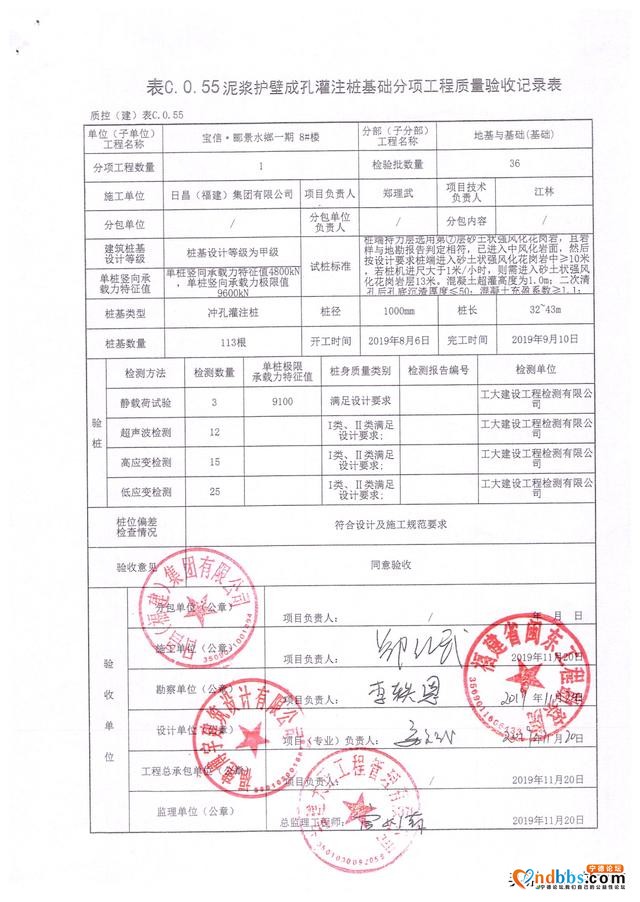 表C.0.55泥浆护壁成孔灌注桩基础分项工程质量验收记录表
质控（建）表C.0.55
单位（子单位）工程名称 宝信·郦景水鄉一期 8#楼 分部（子分部）工程名称 地基与基础(基础)
分项工程数量 1 检验批数量 36
施工单位 日昌（福建）集团有限公司 项目负责人 郑理武 项目技术负责人 江林
分包单位 / 分包单位负责人 / 分包内容 /
建筑桩基设计等级 桩基设计等级为甲级 试桩标准
桩端持力层选用第⑦层砂土状强风化花岗岩，且岩
样与地勘报告判定相符，已进入中风化岩面，然后
按设计要求桩端进入砂土状强风化花岗岩中≥10米，
若桩机进尺大于1米/小时，则需进入砂土状强风
化花岗岩层13米。混凝土超灌高度为1.0m；二次清
孔后孔底沉渣厚度≤50；混凝土充盈系数≥1.1；
单桩竖向承载力特征值 单桩竖向承载力特征值4800kN，单桩竖向承载力极限值9600kN
桩基类型 冲孔灌注桩 桩径 1000mm 桩长 32~43m
桩基数量 113根 开工时间 2019年8月6日 完工时间 2019年9月10日
验桩
检测方法 检测数量 单桩极限承载力特征值 桩身质量类别 检测报告编号 检测单位
静载荷试验 3 9100 满足设计要求 工大建设工程检测有限公司
超声波检测 12 Ⅰ类、Ⅱ类满足设计要求; 工大建设工程检测有限公司
高应变检测 15 Ⅰ类、Ⅱ类满足设计要求; 工大建设工程检测有限公司
低应变检测 25 Ⅰ类、Ⅱ类满足设计要求; 工大建设工程检测有限公司
桩位偏差检查情况 符合设计及施工规范要求
验收意见 同意验收
验收单位
分包单位（公章） 项目负责人： / 年 月 日
施工单位（公章） 项目负责人： 2019年11月20日
勘察单位（公章） 项目负责人： 李轶恩
设计单位（公章） 项目（专业）负责人：
工程总承包单位（公章） / 2019年11月20日
监理单位（公章） 总监理工程师： 2019年11月20日
宁德论坛
ndbbs.com